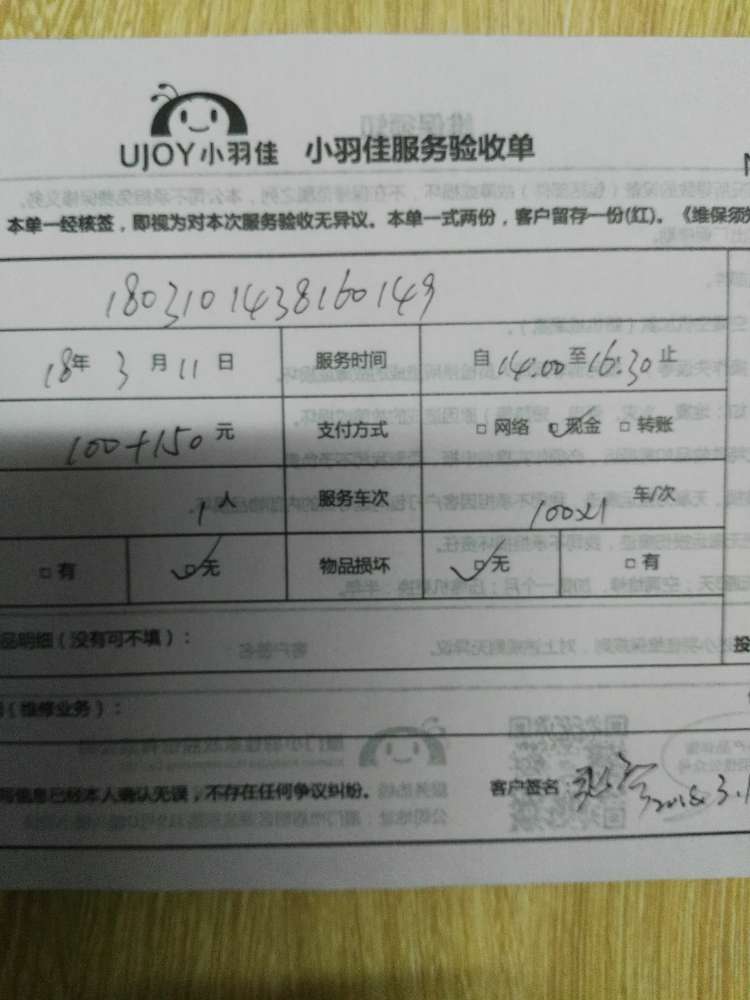 UJOY小羽佳 小羽佳服务验收单
本单一经核签，即视为对本次服务验收无异议。本单一式两份，客户留存一份(红)。《维保须知
1803101438160149
18年 3 月 11 日 服务时间 自 14:00 至 16:30 止
100+150 元 支付方式 □ 网络 □ 现金 □ 转账
1 人 服务车次 100x1 车/次
□ 有 □ 无 物品损坏 □ 无 □ 有
品明细（没有可不填）： 投
（维修业务）：
信息已经本人确认无误，不存在任何争议纠纷。 客户签名： 2018.3.1